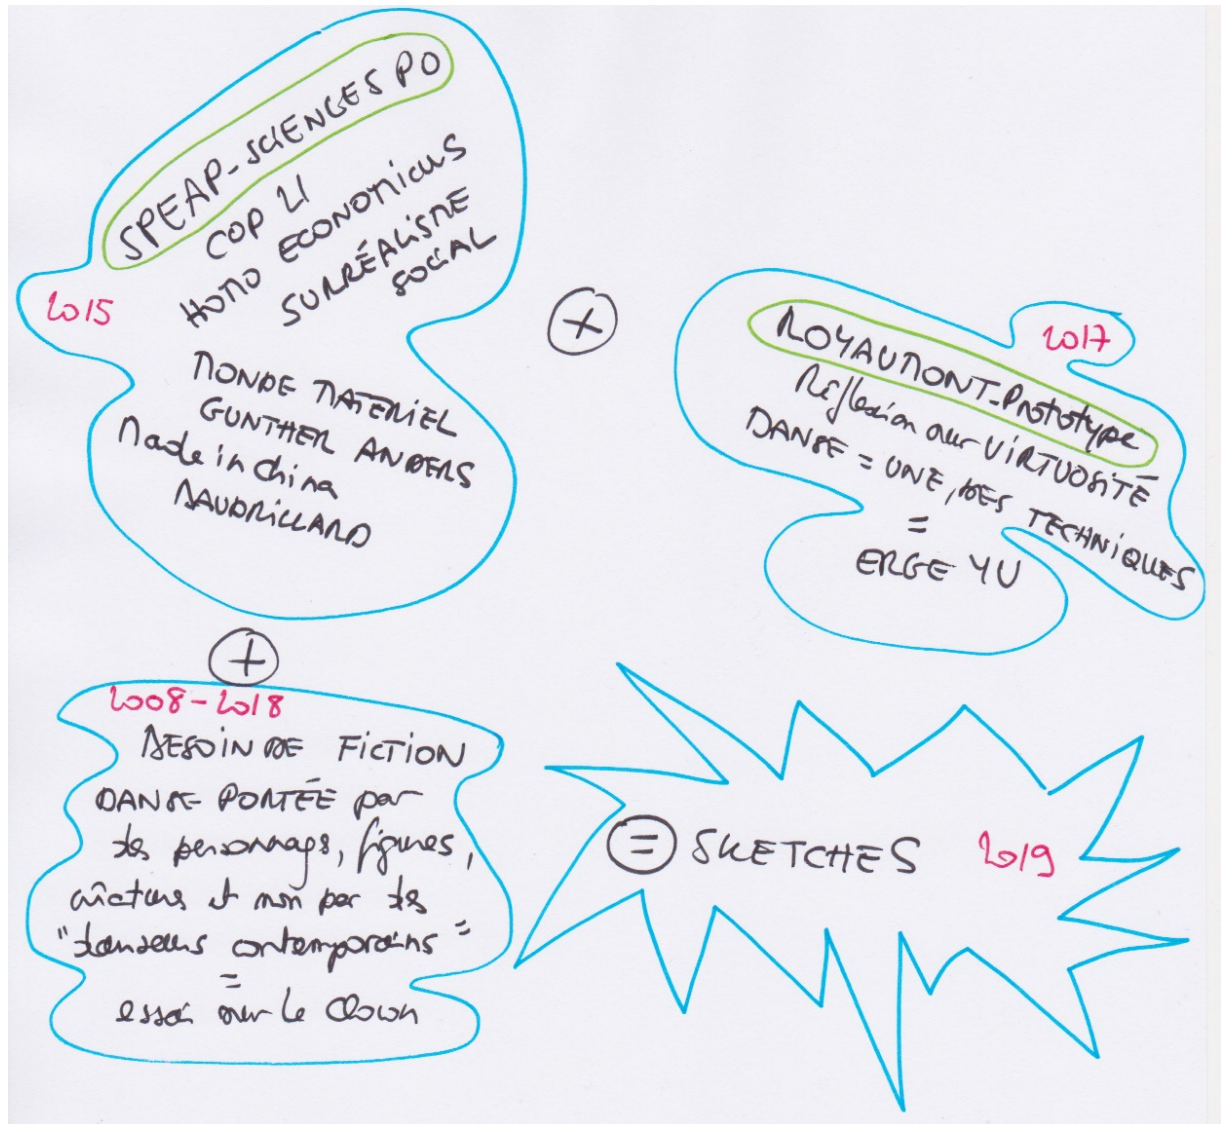 SPEAP-SCIENCES PO
COP 21
HOMO ECONOMICUS
SURRÉALISME
SOCIAL
2015
MONDE MATERIEL
GUNTHER ANDERS
Made in China
BAUDRILLARD
+
+
2017
ROYAUMONT-Prototype
Réflexion sur VIRTUOSITÉ
DANSE = UNE, DES TECHNIQUES
=
ERGE YU
2008-2018
BESOIN DE FICTION
DANSE PORTÉE par
des personnages, figures,
et non par des
"danseurs contemporains"
=
essai sur le Clown
= SKETCHES 2019